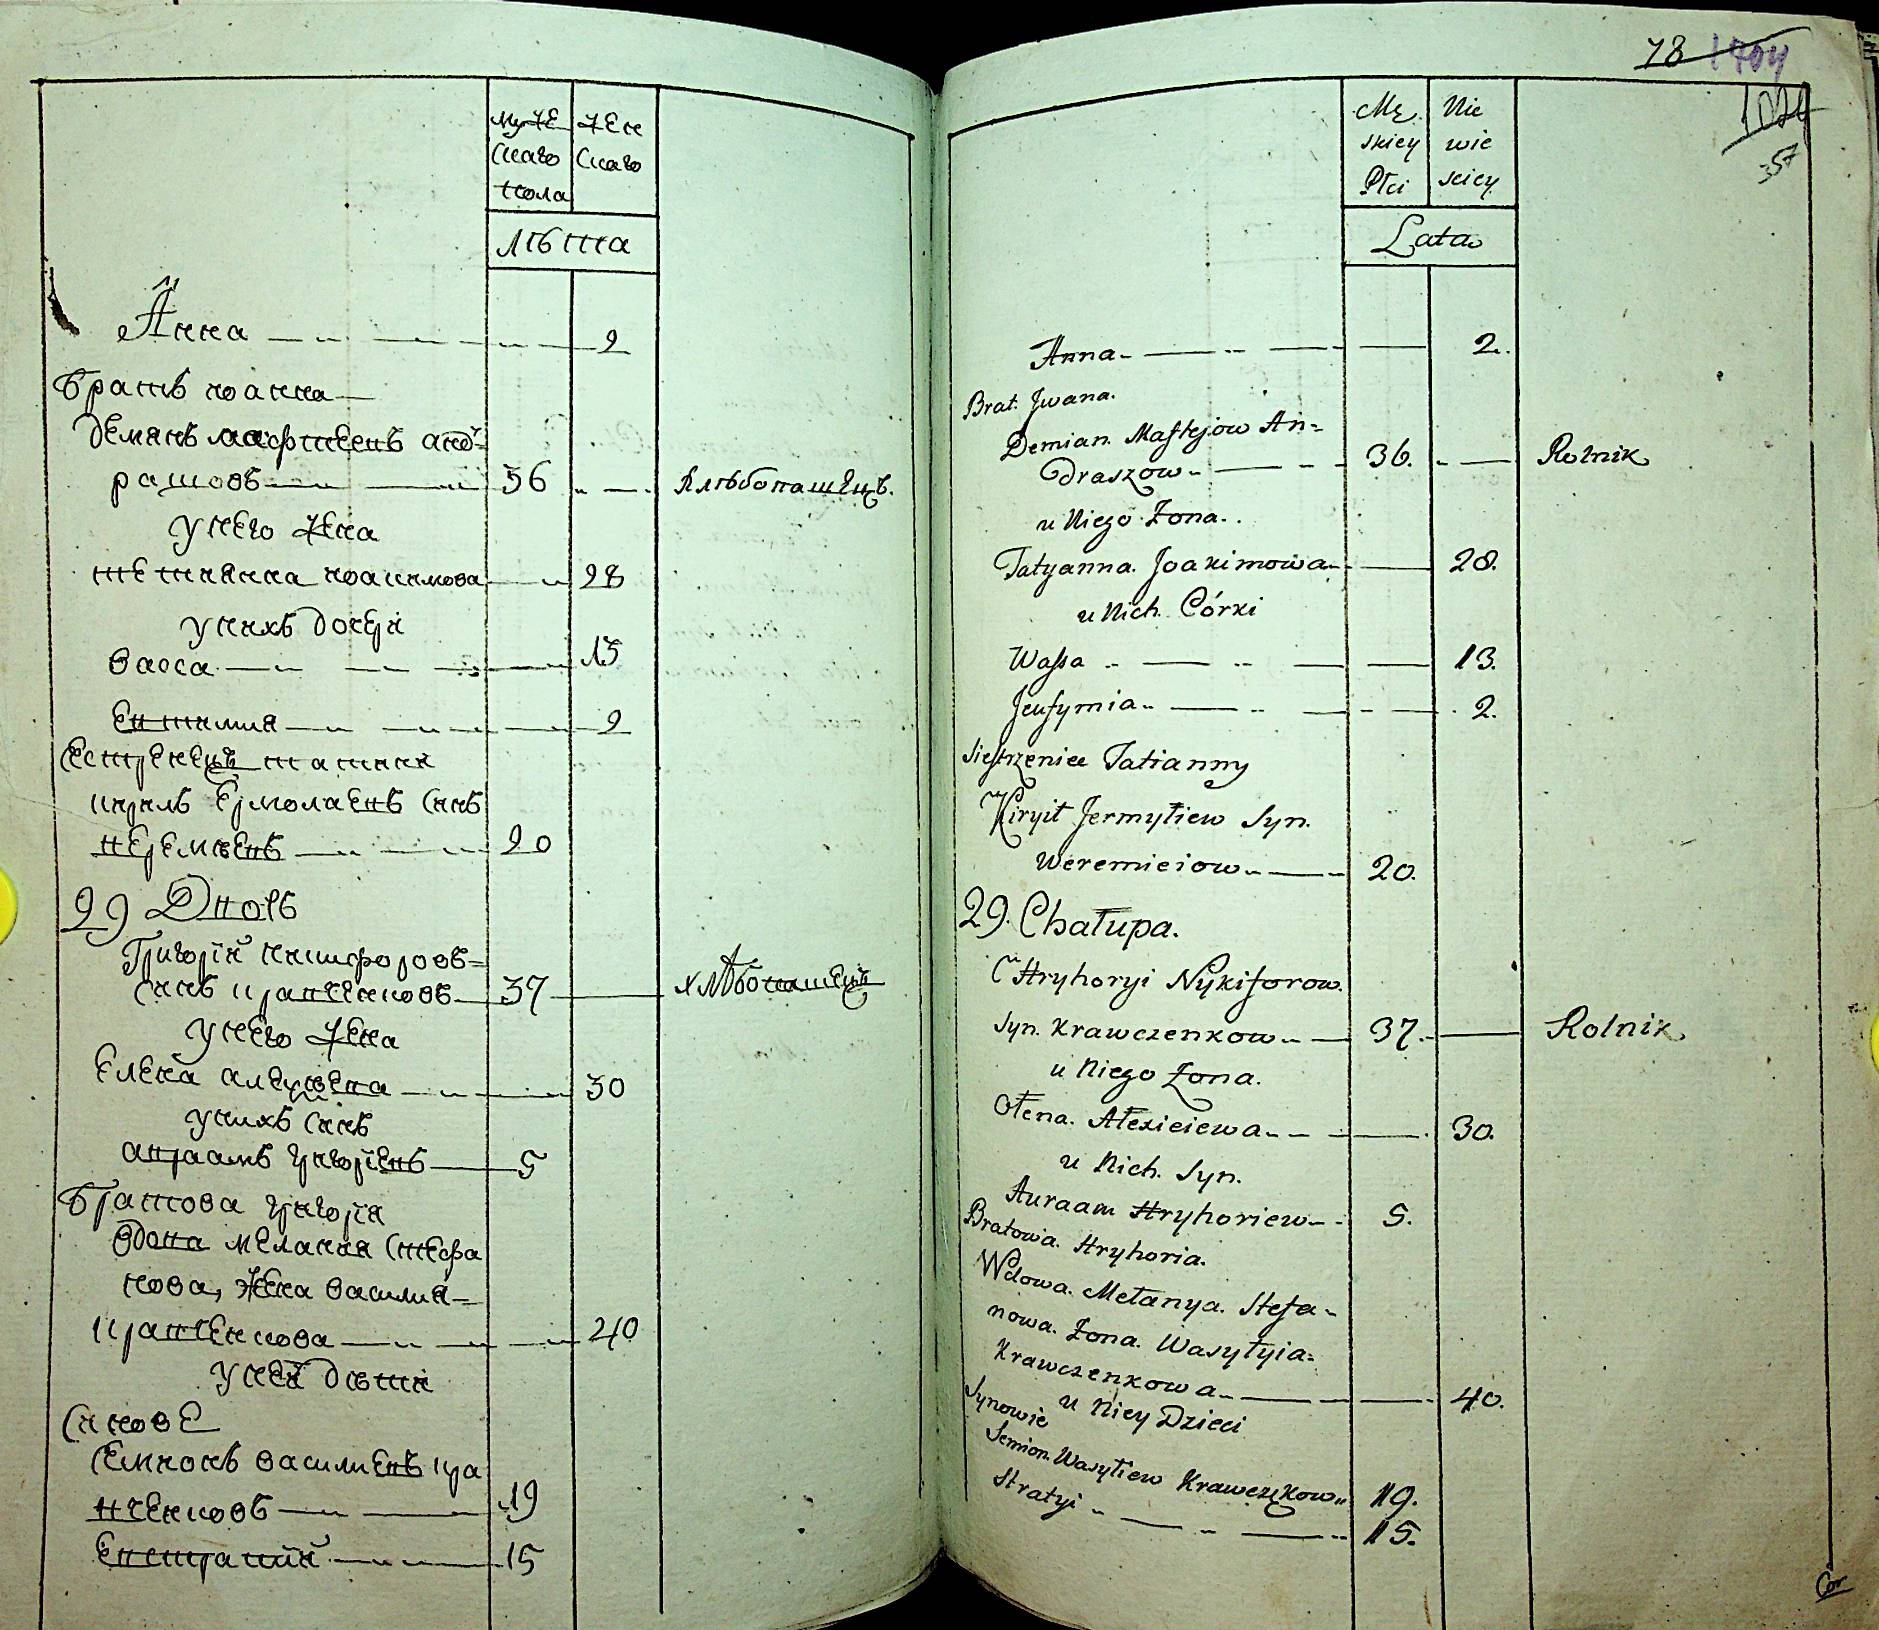 муже
скаго
пола
жен
скаго
лѣта
Анна 2
братъ иоанна
демянъ матфѣевъ анд-
рашовъ 36 хлѣбопашецъ.
у него жена
тетиянна иоакимова 28
у нихъ дочери
васса 13
евтимия 2
сестренецъ татияни
кирилъ ермолаевъ синъ
веремѣевъ 20
29 Дворъ
Григорїй никифоровъ-
синъ кравченковъ 37 хлѣбопашецъ
у него жена
Елена алеѯѣева 30
у нихъ синъ
авраамъ григорїевъ 5
братова григорїя
вдова мелания стефа
нова, жена василия-
кравченкова 40
у ней дѣти
синове
семионъ василиевъ кра
вченковъ 19
евстратий 15
78 1704
1024
357
Mę.
skiey
Płci
Nie
wie
sciey.
Lata
Anna 2.
Brat. Jwana.
Demian. Mastejow An=
draszow 36. Rolnik
u Niego Żona..
Tatyanna. Joakimowa 28.
u Nich. Córki
Wassa 13.
Jeufymia 2.
Siestrzeniec Tatianny
Kirył Jermyłiew Syn.
Weremieiow 20.
29. Chałupa.
Hryhoryi Nykiforow.
Syn. Krawczenkow 37. Rolnik
u Niego Żona.
Ołena. Ałexieiewa 30.
u Nich. Syn.
Auraam Hryhoriew 5.
Bratowa. Hryhoria.
Wdowa. Mełanya. Stefa-
nowa. Żona. Wasyłyia=
Krawczenkowa 40.
u Niey Dzieci
Synowie
Semion. Wasyłiew Krawczkow 19.
Stratyi 15.